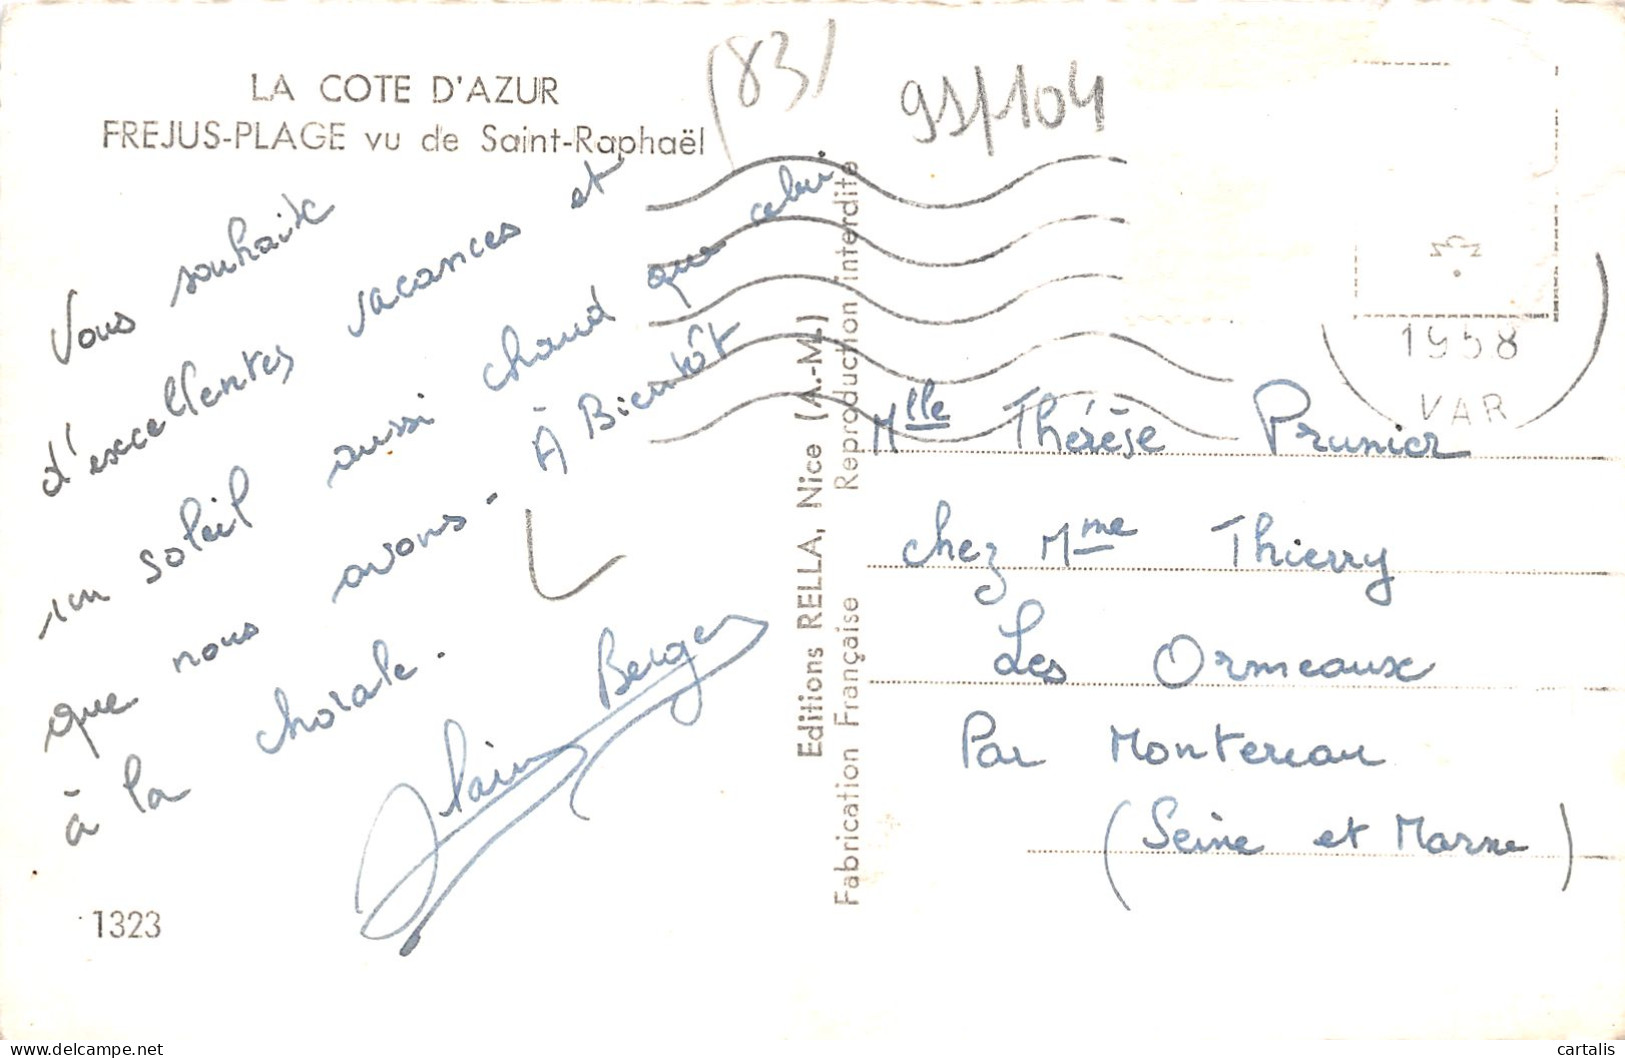 LA COTE D'AZUR
FREJUS-PLAGE vu de Saint-Raphaël
(83)
93/104
Vous souhaite
d'excellentes vacances et
un soleil aussi chaud que celui
que nous avons - À Bientôt
à la chorale.
Alain Berger
1323
Editions RELLA, Nice (A.-M.)
Reproduction interdite
Fabrication Française
1958
VAR
Mlle Thérèse Prunier
chez Mme Thierry
Les Ormeaux
Par Montereau
(Seine et Marne)
cartalis